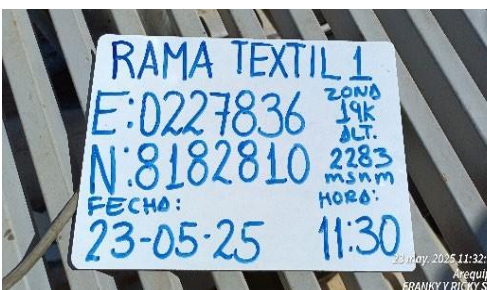 RAMA TEXTIL 1
E:0227836
ZONA
19K
ALT.
N:8182810
2283
msnm
FECHA:
HORA:
23-05-25
11:30
23 may. 2025 11:32:
Arequip
FRANKY Y RICKY S